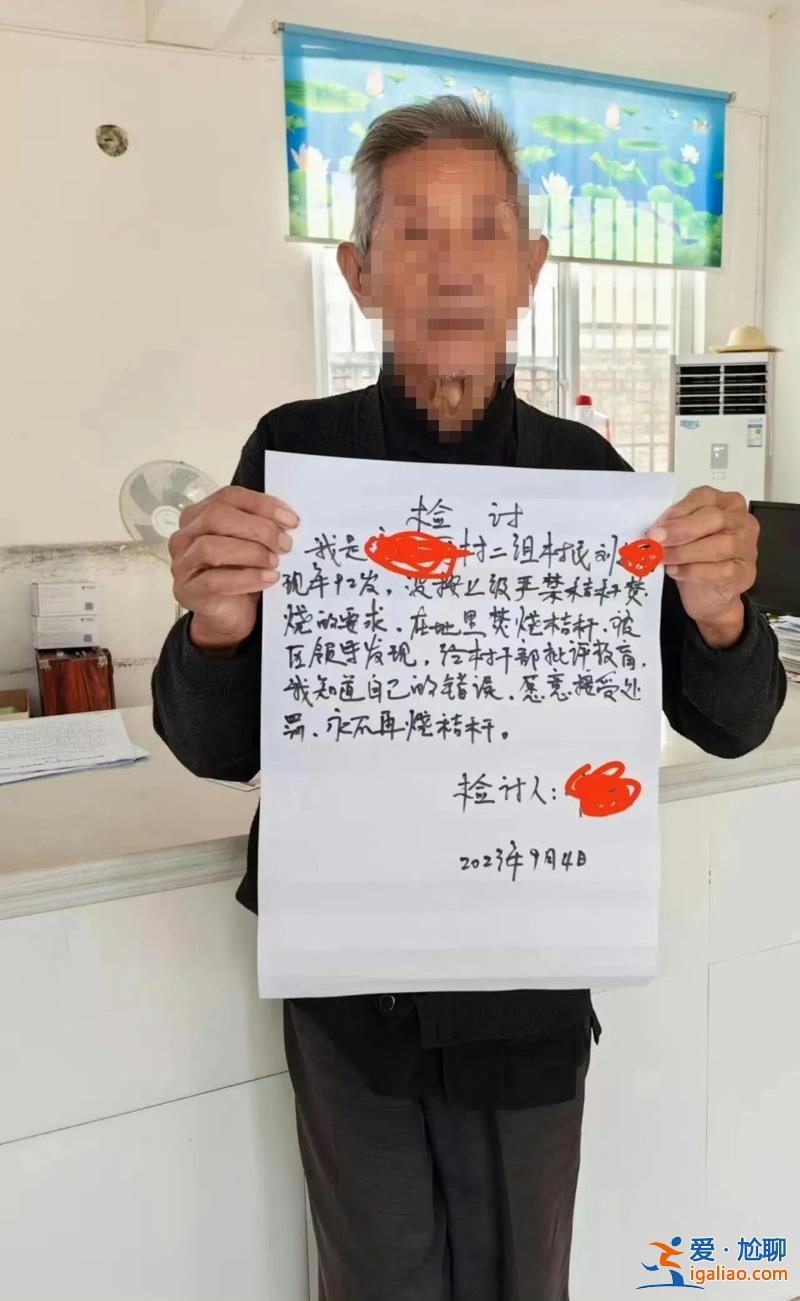 检 讨
我是村二组村民刘
现年92岁，没按上级严禁秸秆焚
烧的要求，在地里焚烧秸秆，被
区领导发现，经村干部批评教育，
我知道自己的错误，愿意接受处
罚，永不再烧秸秆。
检讨人：
2023年9月4日
爱·尬聊
igaliao.com